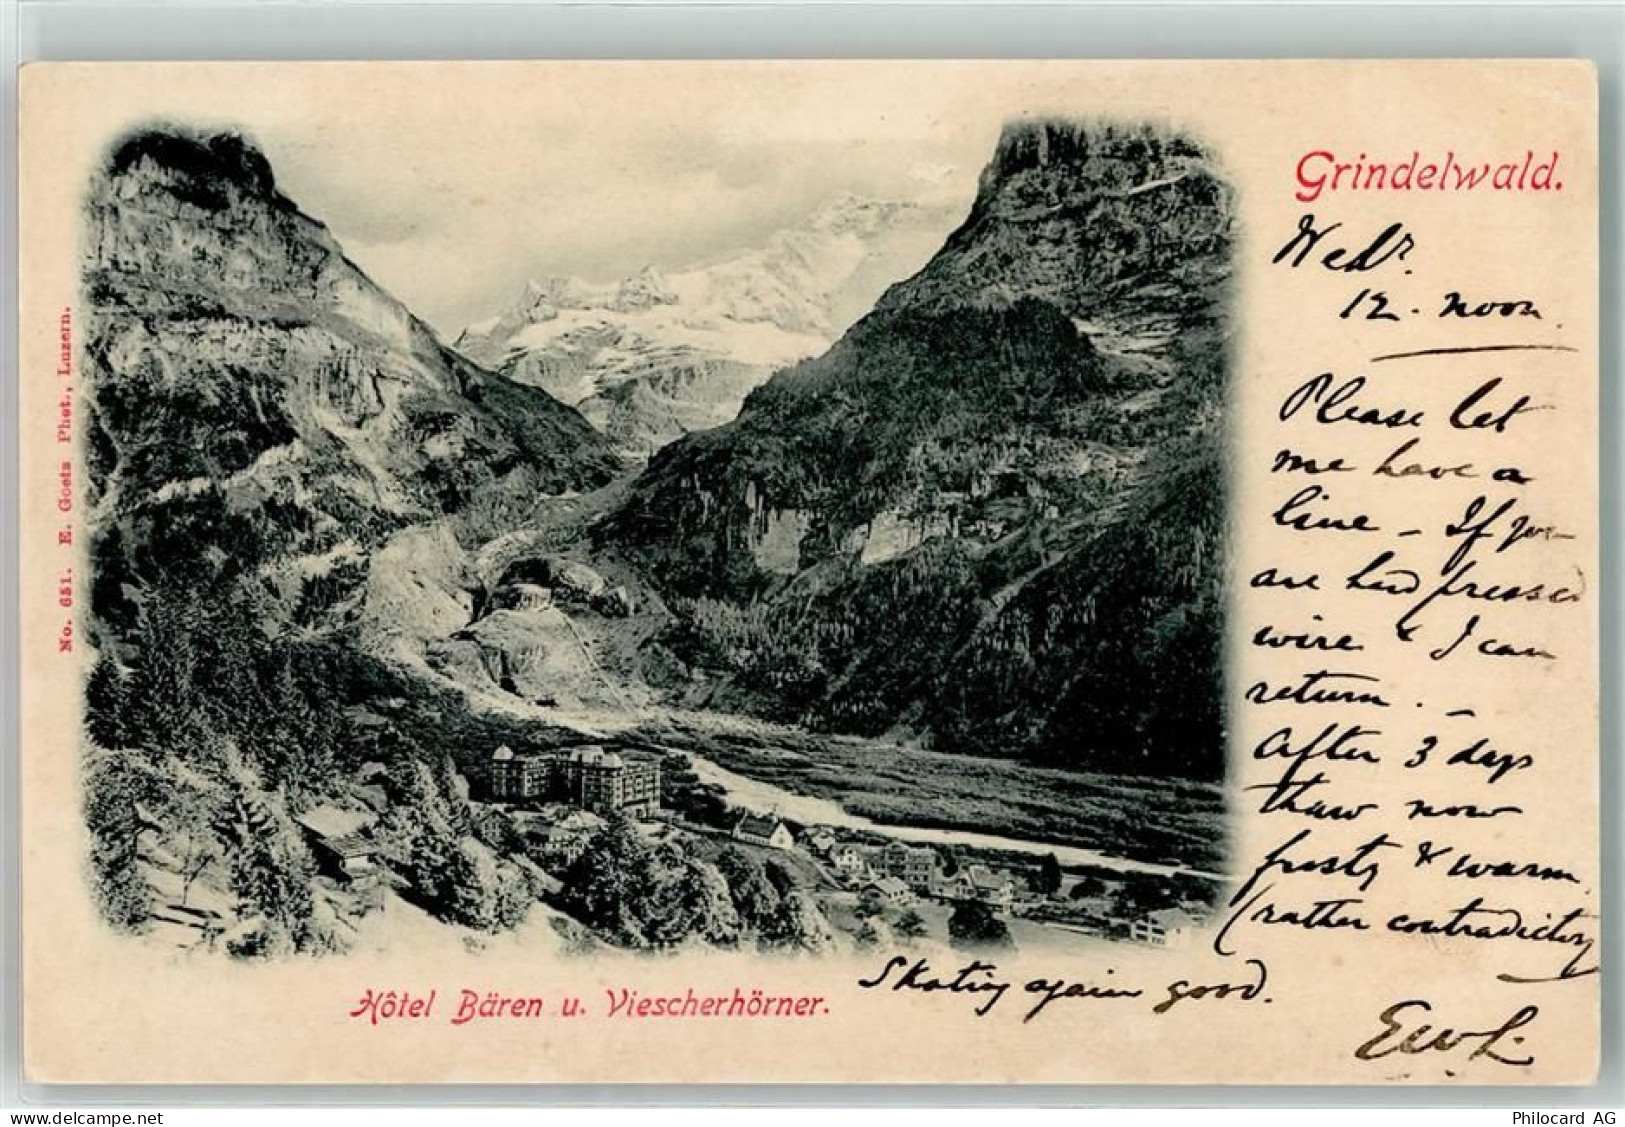 Grindelwald.
Wedr.
12. noon.
Please let
me have a
line – If you
are hard pressed
wire & I can
return. –
After 3 days
thaw now
frosty & warm.
(rather contradictory
Skating again good.
EWL.
Hôtel Bären u. Viescherhörner.
No. 651. E. Goetz Phot., Luzern.
delcampe.net
Philocard AG